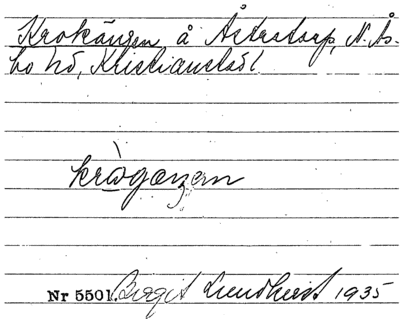 Krokängen å Åstorp, N. Ås-
bo hd, Kristianstads l
Nr 5501. Birgit Lundkvist 1935